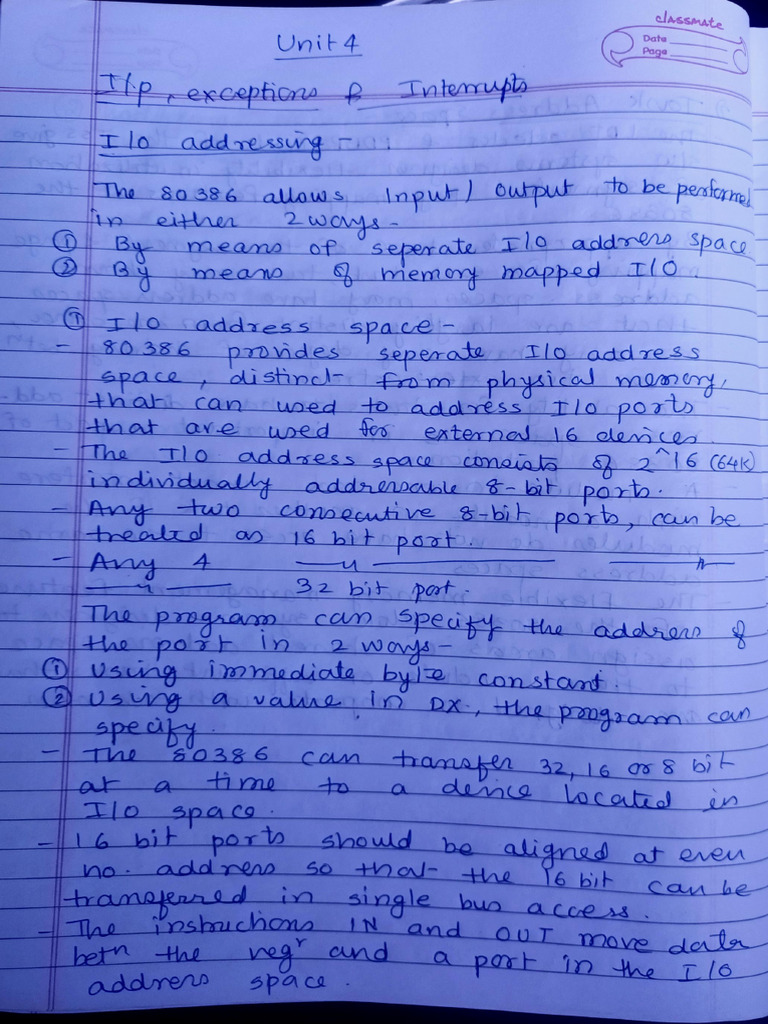 classmate
Date
Page
Unit 4
I/p, exceptions & Interrupts
I/O addressing -
The 80386 allows Input / Output to be performed
in either 2 ways -
① By means of seperate I/O address space
② By means of memory mapped I/O
① I/O address space -
- 80386 provides seperate I/O address
space, distinct from physical memory,
that can used to address I/O ports
that are used for external 16 devices.
- The I/O address space consists of 2^16 (64K)
individually addressable 8-bit ports.
- Any two consecutive 8-bit ports, can be
treated as 16 bit port.
- Any 4 —〃— —〃—
—〃— 32 bit port.
The program can specify the address of
the port in 2 ways -
① Using immediate byte constant.
② Using a value in DX, the program can
specify.
- The 80386 can transfer 32, 16 or 8 bit
at a time to a device located in
I/O space.
- 16 bit ports should be aligned at even
no. address so that the 16 bit can be
transferred in single bus access.
- The instructions IN and OUT move data
betn the regr and a port in the I/O
address space.